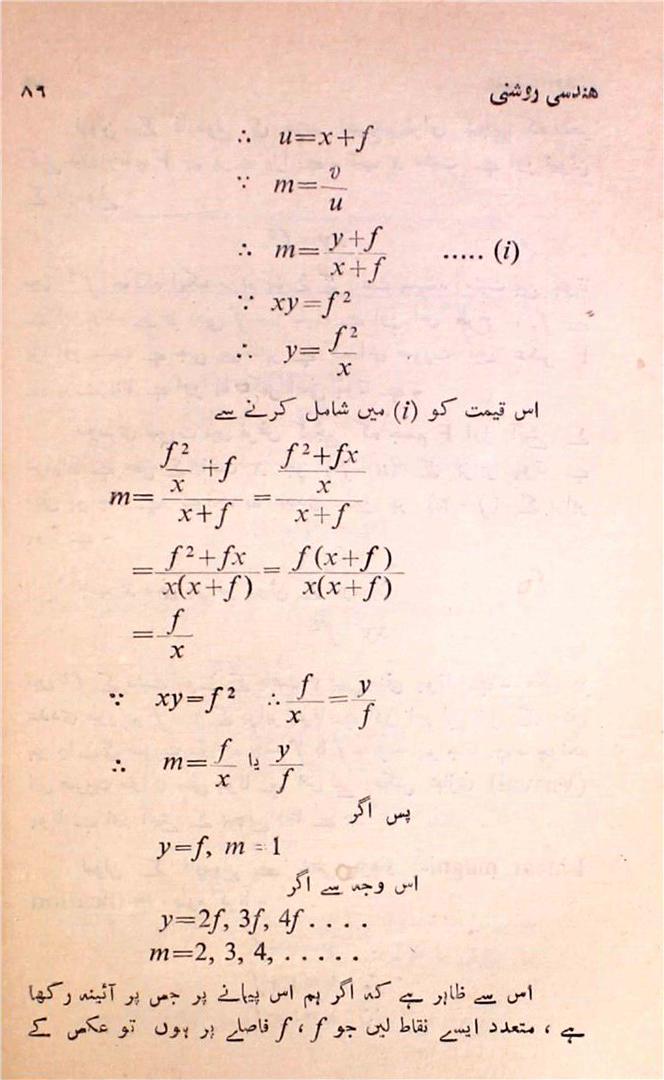 هندسی روشنی ۸۹
∴ u=x+f
∵ m=v/u
∴ m=(y+f)/(x+f) ..... (i)
∵ xy=f²
∴ y=f²/x
اس قیمت کو (i) میں شامل کرنے سے
m=(f²/x +f)/(x+f) = ((f²+fx)/x)/(x+f)
=(f²+fx)/(x(x+f)) = f(x+f)/(x(x+f))
=f/x
∵ xy=f² ∴ f/x=y/f
∴ m=f/x یا y/f
پس اگر
y=f, m=1
اس وجہ سے اگر
y=2f, 3f, 4f....
m=2, 3, 4, .....
اس سے ظاہر ہے کہ اگر ہم اس پیمانے پر جس پر آئینہ رکھا
ہے ، متعدد ایسے نقاط لیں جو f ، f فاصلے پر ہوں تو عکس کے